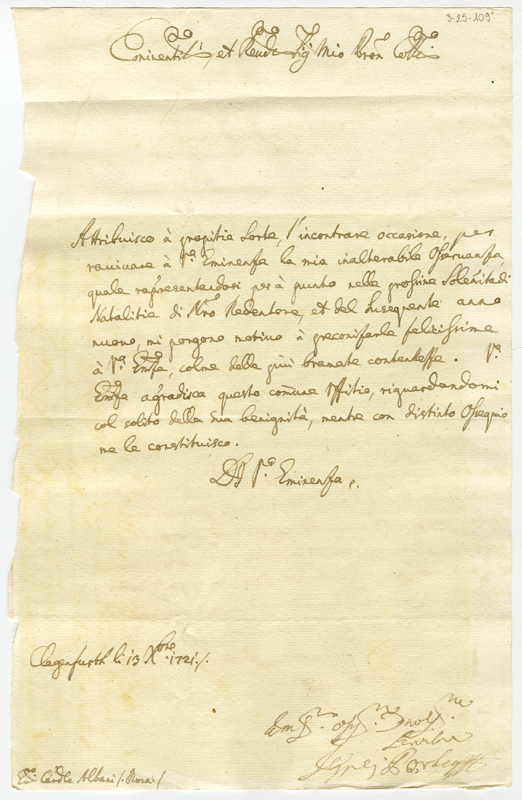 3-25-109
Eminentis: et Reud: Sig: Mio Pron: Coll:
Attribuisco à propitia Sorte, l'incontrare occasione, per
rauiuare à V.ra Eminenza la mia inalterabile Osseruanza,
quale rapresentandosi per à punto nelle prossime Solenità di
Natalitie di Nro Redentore, et del susequente anno
nuouo, mi porgono motiuo à preconisarle felicissime
à V.ra Emza, colme delle più bramate contentezze. V.ra
Emza agradisca questo comune Uffitio, riguardandomi
col solito della sua benignità, mentre con distinto Ossequio
me le constituisco.
Di V.ra Eminenza.
Clagenfurth li 13 Xbre 1721.
Em: Cardle Albani /: Roma :/